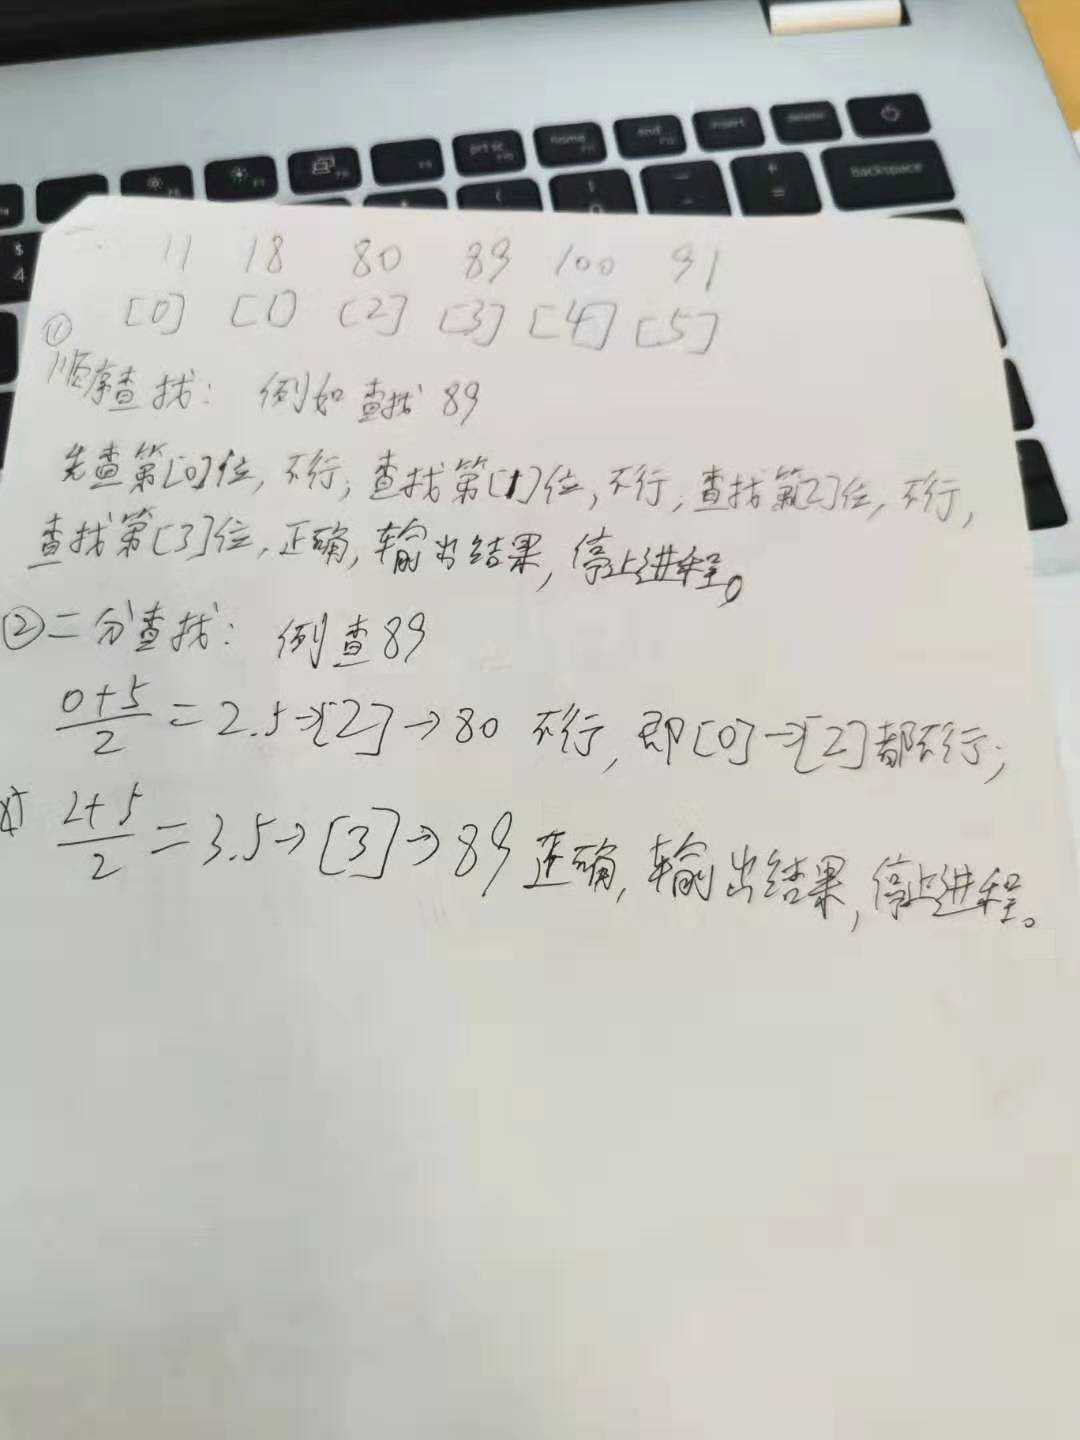 prt sc
home
end
insert
delete
Backspace
$
4
一.
11 18 80 89 100 91
[0] [1] [2] [3] [4] [5]
①
顺序查找: 例如查找 89
先查第[0]位, 不行; 查找第[1]位, 不行, 查找第[2]位, 不行,
查找第[3]位, 正确, 输出结果, 停止进程。
②二分查找: 例查89
0+5/2 = 2.5→[2]→80 不行, 即[0]→[2]都不行;
2+5/2 = 3.5→[3]→89 正确, 输出结果, 停止进程。